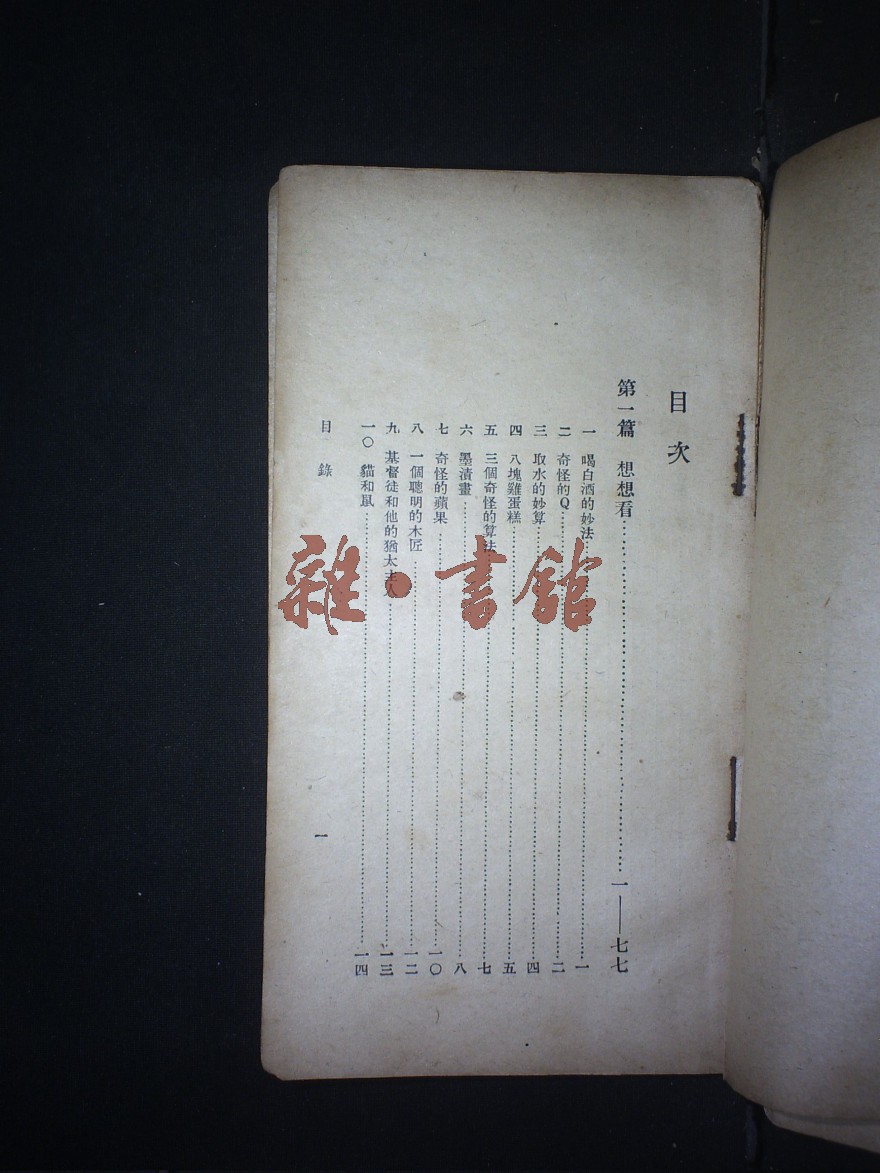 目次
第一篇 想想看……一——七七
一 喝白酒的妙法……一
二 奇怪的Q……二
三 取水的妙算……四
四 八塊雞蛋糕……五
五 三個奇怪的算法……七
六 墨漬畫……八
七 奇怪的蘋果……一〇
八 一個聰明的木匠……一二
九 基督徒和他的猶太主人……一三
一〇 貓和鼠……一四
目錄
一
雜·書館